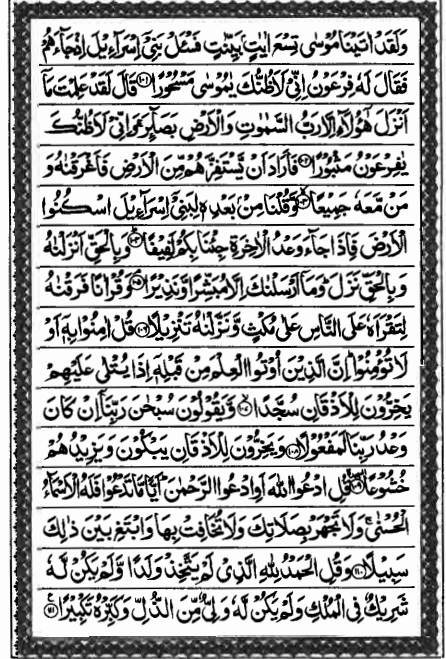 وَلَقَدْ اٰتَيْنَا مُوْسٰى تِسْعَ اٰيٰتٍۭ بَيِّنٰتٍ فَسْـَٔلْ بَنِيْۤ اِسْرَآءِيْلَ اِذْ جَآءَهُمْ
فَقَالَ لَهٗ فِرْعَوْنُ اِنِّيْ لَاَظُنُّكَ يٰمُوْسٰى مَسْحُوْرًا ﴿۱۰۱﴾ قَالَ لَقَدْ عَلِمْتَ مَاۤ
اَنْزَلَ هٰۤؤُلَآءِ اِلَّا رَبُّ السَّمٰوٰتِ وَالْاَرْضِ بَصَآئِرَ وَاِنِّيْ لَاَظُنُّكَ
يٰفِرْعَوْنُ مَثْبُوْرًا ﴿۱۰۲﴾ فَاَرَادَ اَنْ يَّسْتَفِزَّهُمْ مِّنَ الْاَرْضِ فَاَغْرَقْنٰهُ وَ
مَنْ مَّعَهٗ جَمِيْعًا ﴿۱۰۳﴾ وَّقُلْنَا مِنْۢ بَعْدِهٖ لِبَنِيْۤ اِسْرَآءِيْلَ اسْكُنُوا
الْاَرْضَ فَاِذَا جَآءَ وَعْدُ الْاٰخِرَةِ جِئْنَا بِكُمْ لَفِيْفًا ﴿۱۰۴﴾ وَبِالْحَقِّ اَنْزَلْنٰهُ
وَبِالْحَقِّ نَزَلَ وَمَاۤ اَرْسَلْنٰكَ اِلَّا مُبَشِّرًا وَّنَذِيْرًا ﴿۱۰۵﴾ وَقُرْاٰنًا فَرَقْنٰهُ
لِتَقْرَاَهٗ عَلَى النَّاسِ عَلٰى مُكْثٍ وَّنَزَّلْنٰهُ تَنْزِيْلًا ﴿۱۰۶﴾ قُلْ اٰمِنُوْا بِهٖۤ اَوْ
لَا تُؤْمِنُوْا اِنَّ الَّذِيْنَ اُوْتُوا الْعِلْمَ مِنْ قَبْلِهٖۤ اِذَا يُتْلٰى عَلَيْهِمْ
يَخِرُّوْنَ لِلْاَذْقَانِ سُجَّدًا ﴿۱۰۷﴾ وَّيَقُوْلُوْنَ سُبْحٰنَ رَبِّنَاۤ اِنْ كَانَ
وَعْدُ رَبِّنَا لَمَفْعُوْلًا ﴿۱۰۸﴾ وَيَخِرُّوْنَ لِلْاَذْقَانِ يَبْكُوْنَ وَيَزِيْدُهُمْ
خُشُوْعًا ﴿۱۰۹﴾ قُلِ ادْعُوا اللّٰهَ اَوِ ادْعُوا الرَّحْمٰنَ اَيًّا مَّا تَدْعُوْا فَلَهُ الْاَسْمَآءُ
الْحُسْنٰى وَلَا تَجْهَرْ بِصَلَاتِكَ وَلَا تُخَافِتْ بِهَا وَابْتَغِ بَيْنَ ذٰلِكَ
سَبِيْلًا ﴿۱۱۰﴾ وَقُلِ الْحَمْدُ لِلّٰهِ الَّذِيْ لَمْ يَتَّخِذْ وَلَدًا وَّلَمْ يَكُنْ لَّهٗ
شَرِيْكٌ فِي الْمُلْكِ وَلَمْ يَكُنْ لَّهٗ وَلِيٌّ مِّنَ الذُّلِّ وَكَبِّرْهُ تَكْبِيْرًا ﴿۱۱۱﴾